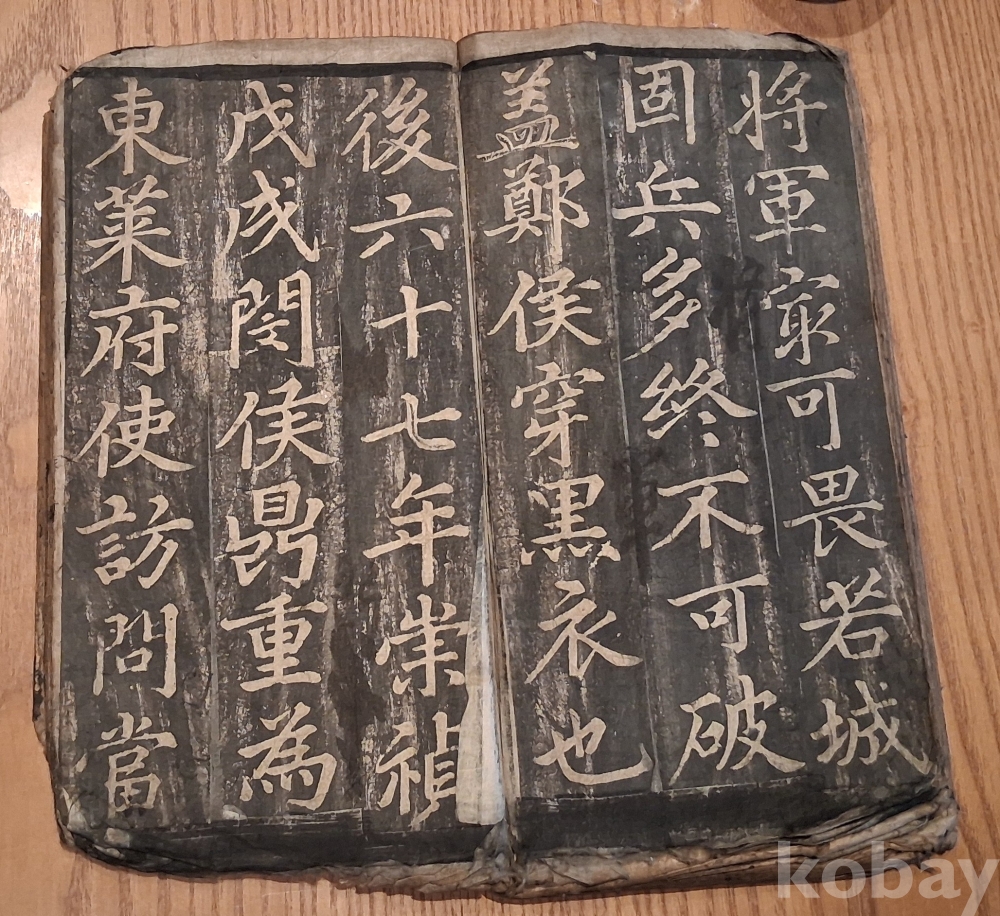 将軍㝡可畏若城
固兵多终不可破
盖鄭侯穿黒衣也
後六十七年崇禎
戊戌閔侯鼎重為
東莱府使訪問當
kobay